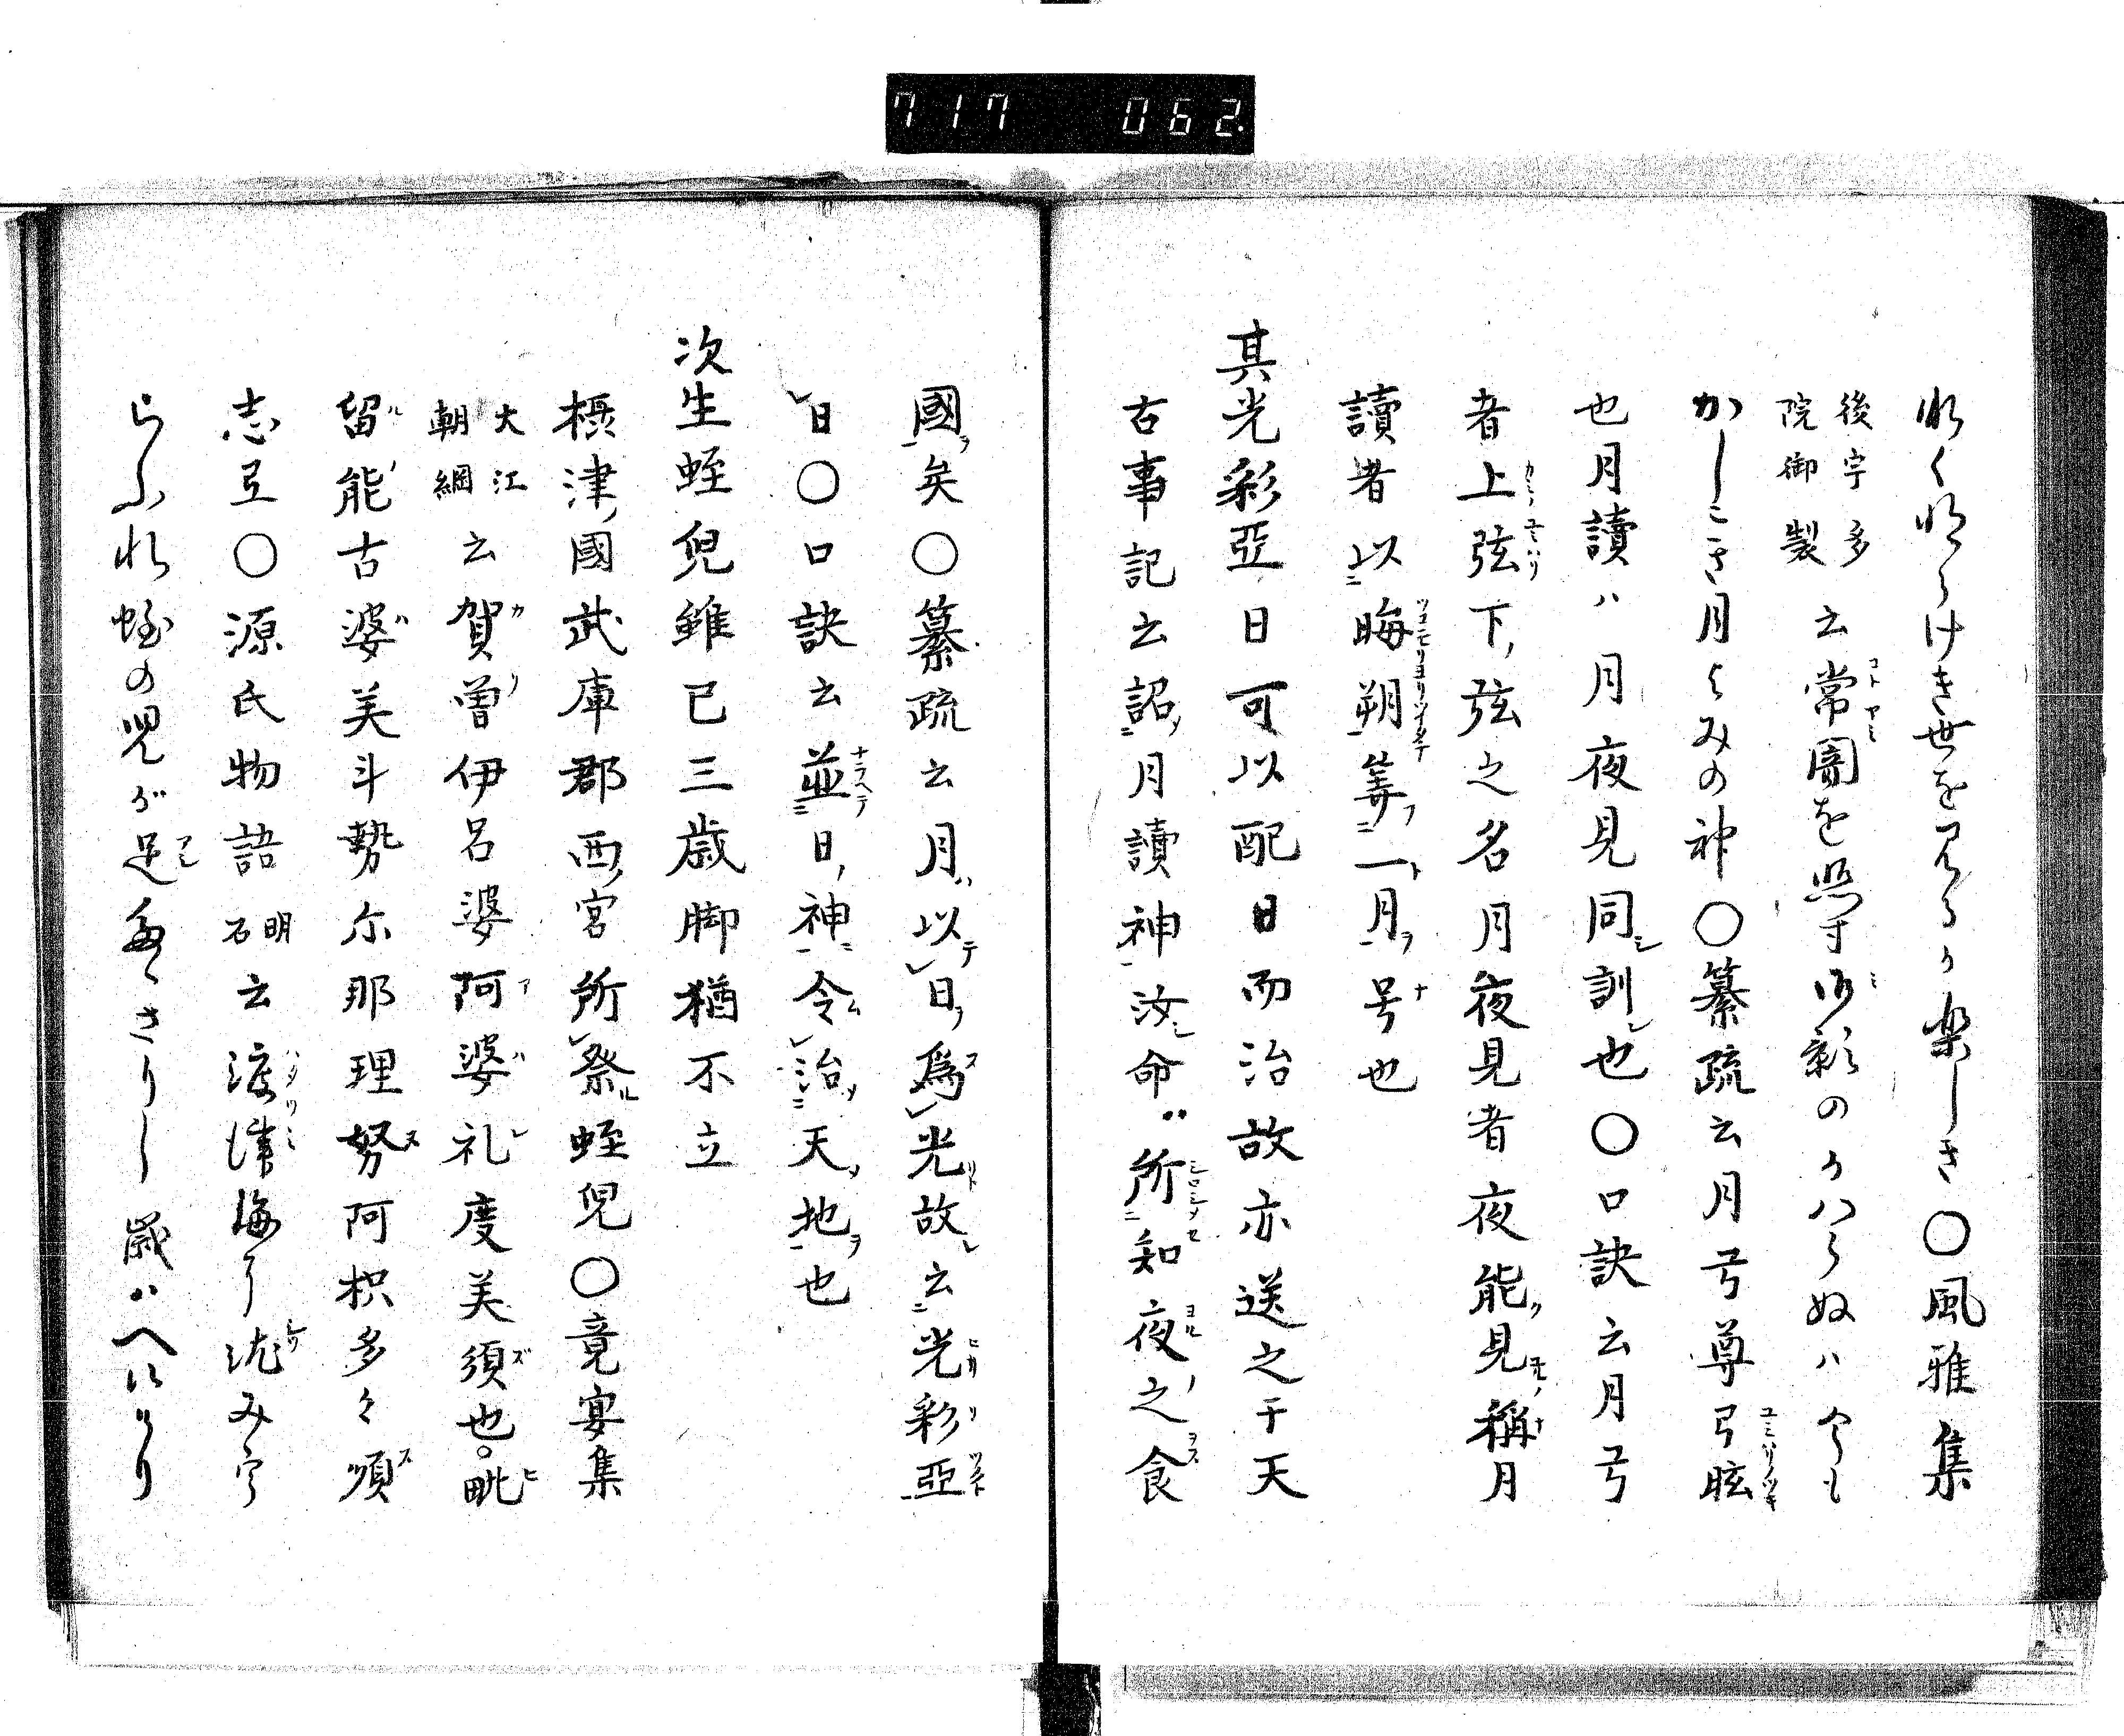 717 062.
くらけき世を見るか楽しさ〇風雅集
後宇多院御製云常闇を照す御影のかハらぬハ今も
かしこき月よみの神〇纂疏云月弓尊弓眩
也月讀ハ月夜見同シ訓也〇口訣云月弓
者上弦下弦之名月夜見者夜能見稱月
讀者以晦朔筭一月号也
其光彩亞日可以配日而治故亦送之于天
古事記云詔月讀神汝命ハ所知夜之食
國矣〇纂疏云月ハ以日爲光故云光彩亞
日〇口訣云並日神令治天地也
次生蛭兒雖已三歳脚猶不立
攝津國武庫郡西宮所祭蛭兒〇竟宴集
大江朝綱云賀曽伊呂婆阿婆礼度美須也毗
留能古婆美斗勢尓那理努阿枳多々須
志弖〇源氏物語明石云渡津海に沈みう
らふれ蛭の児が足たゝさりし歳ハへにけり